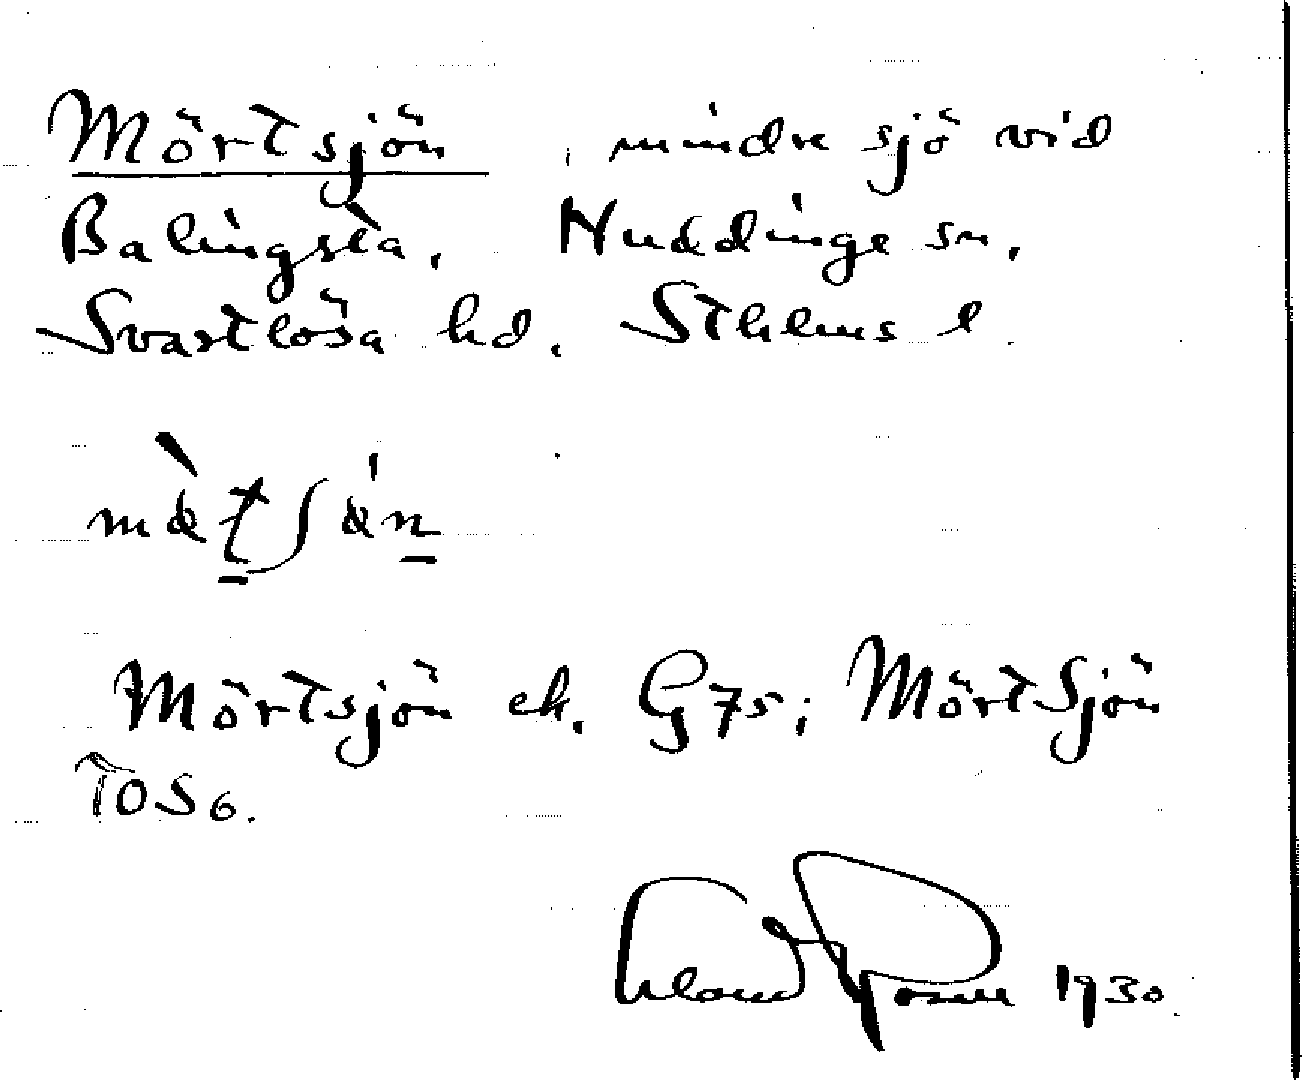 Mörtsjön, mindre sjö vid
Balingsta, Huddinge sn,
Svartlösa hd. Sthlms l
Mörtsjön ek. G75; MörtSjön
TOS6.
1930.